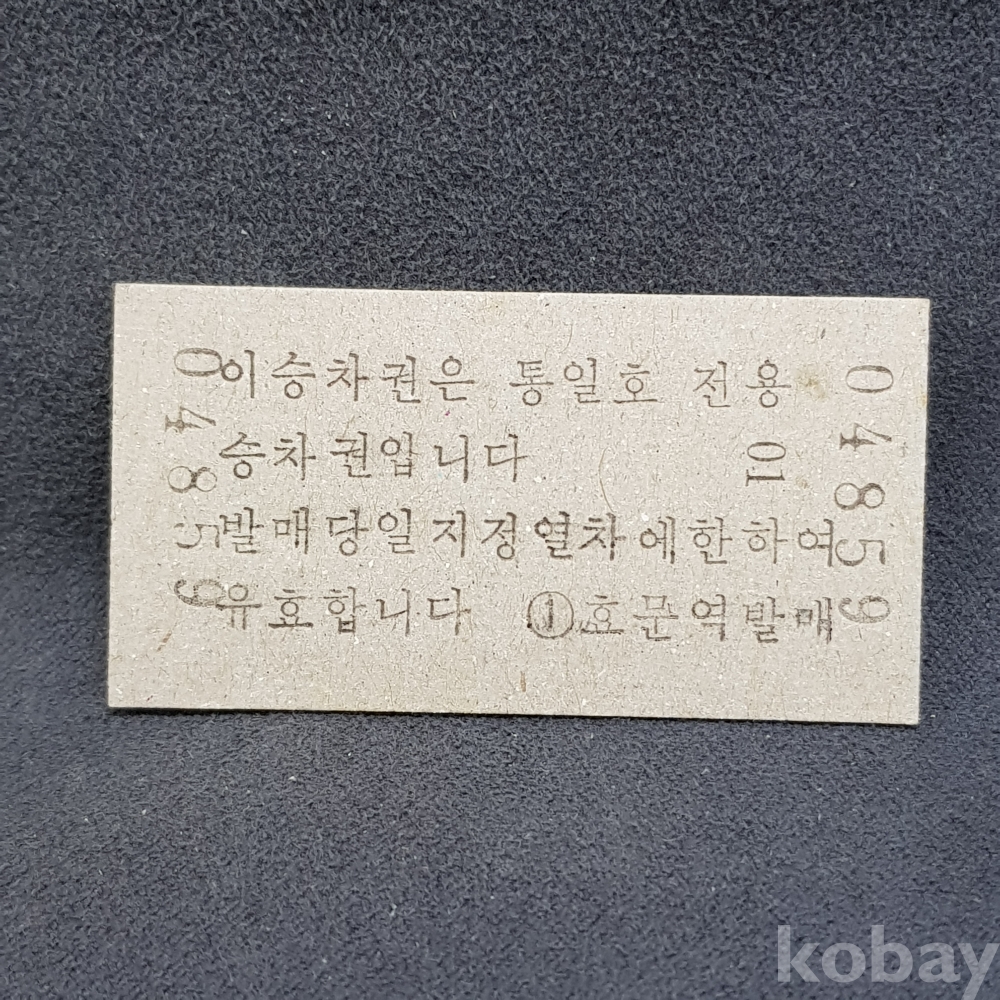 이승차권은 통일호 전용
승차권입니다
01
발매당일지정열차에한하여
유효합니다 ①효문역발매
04859
04859
kobay